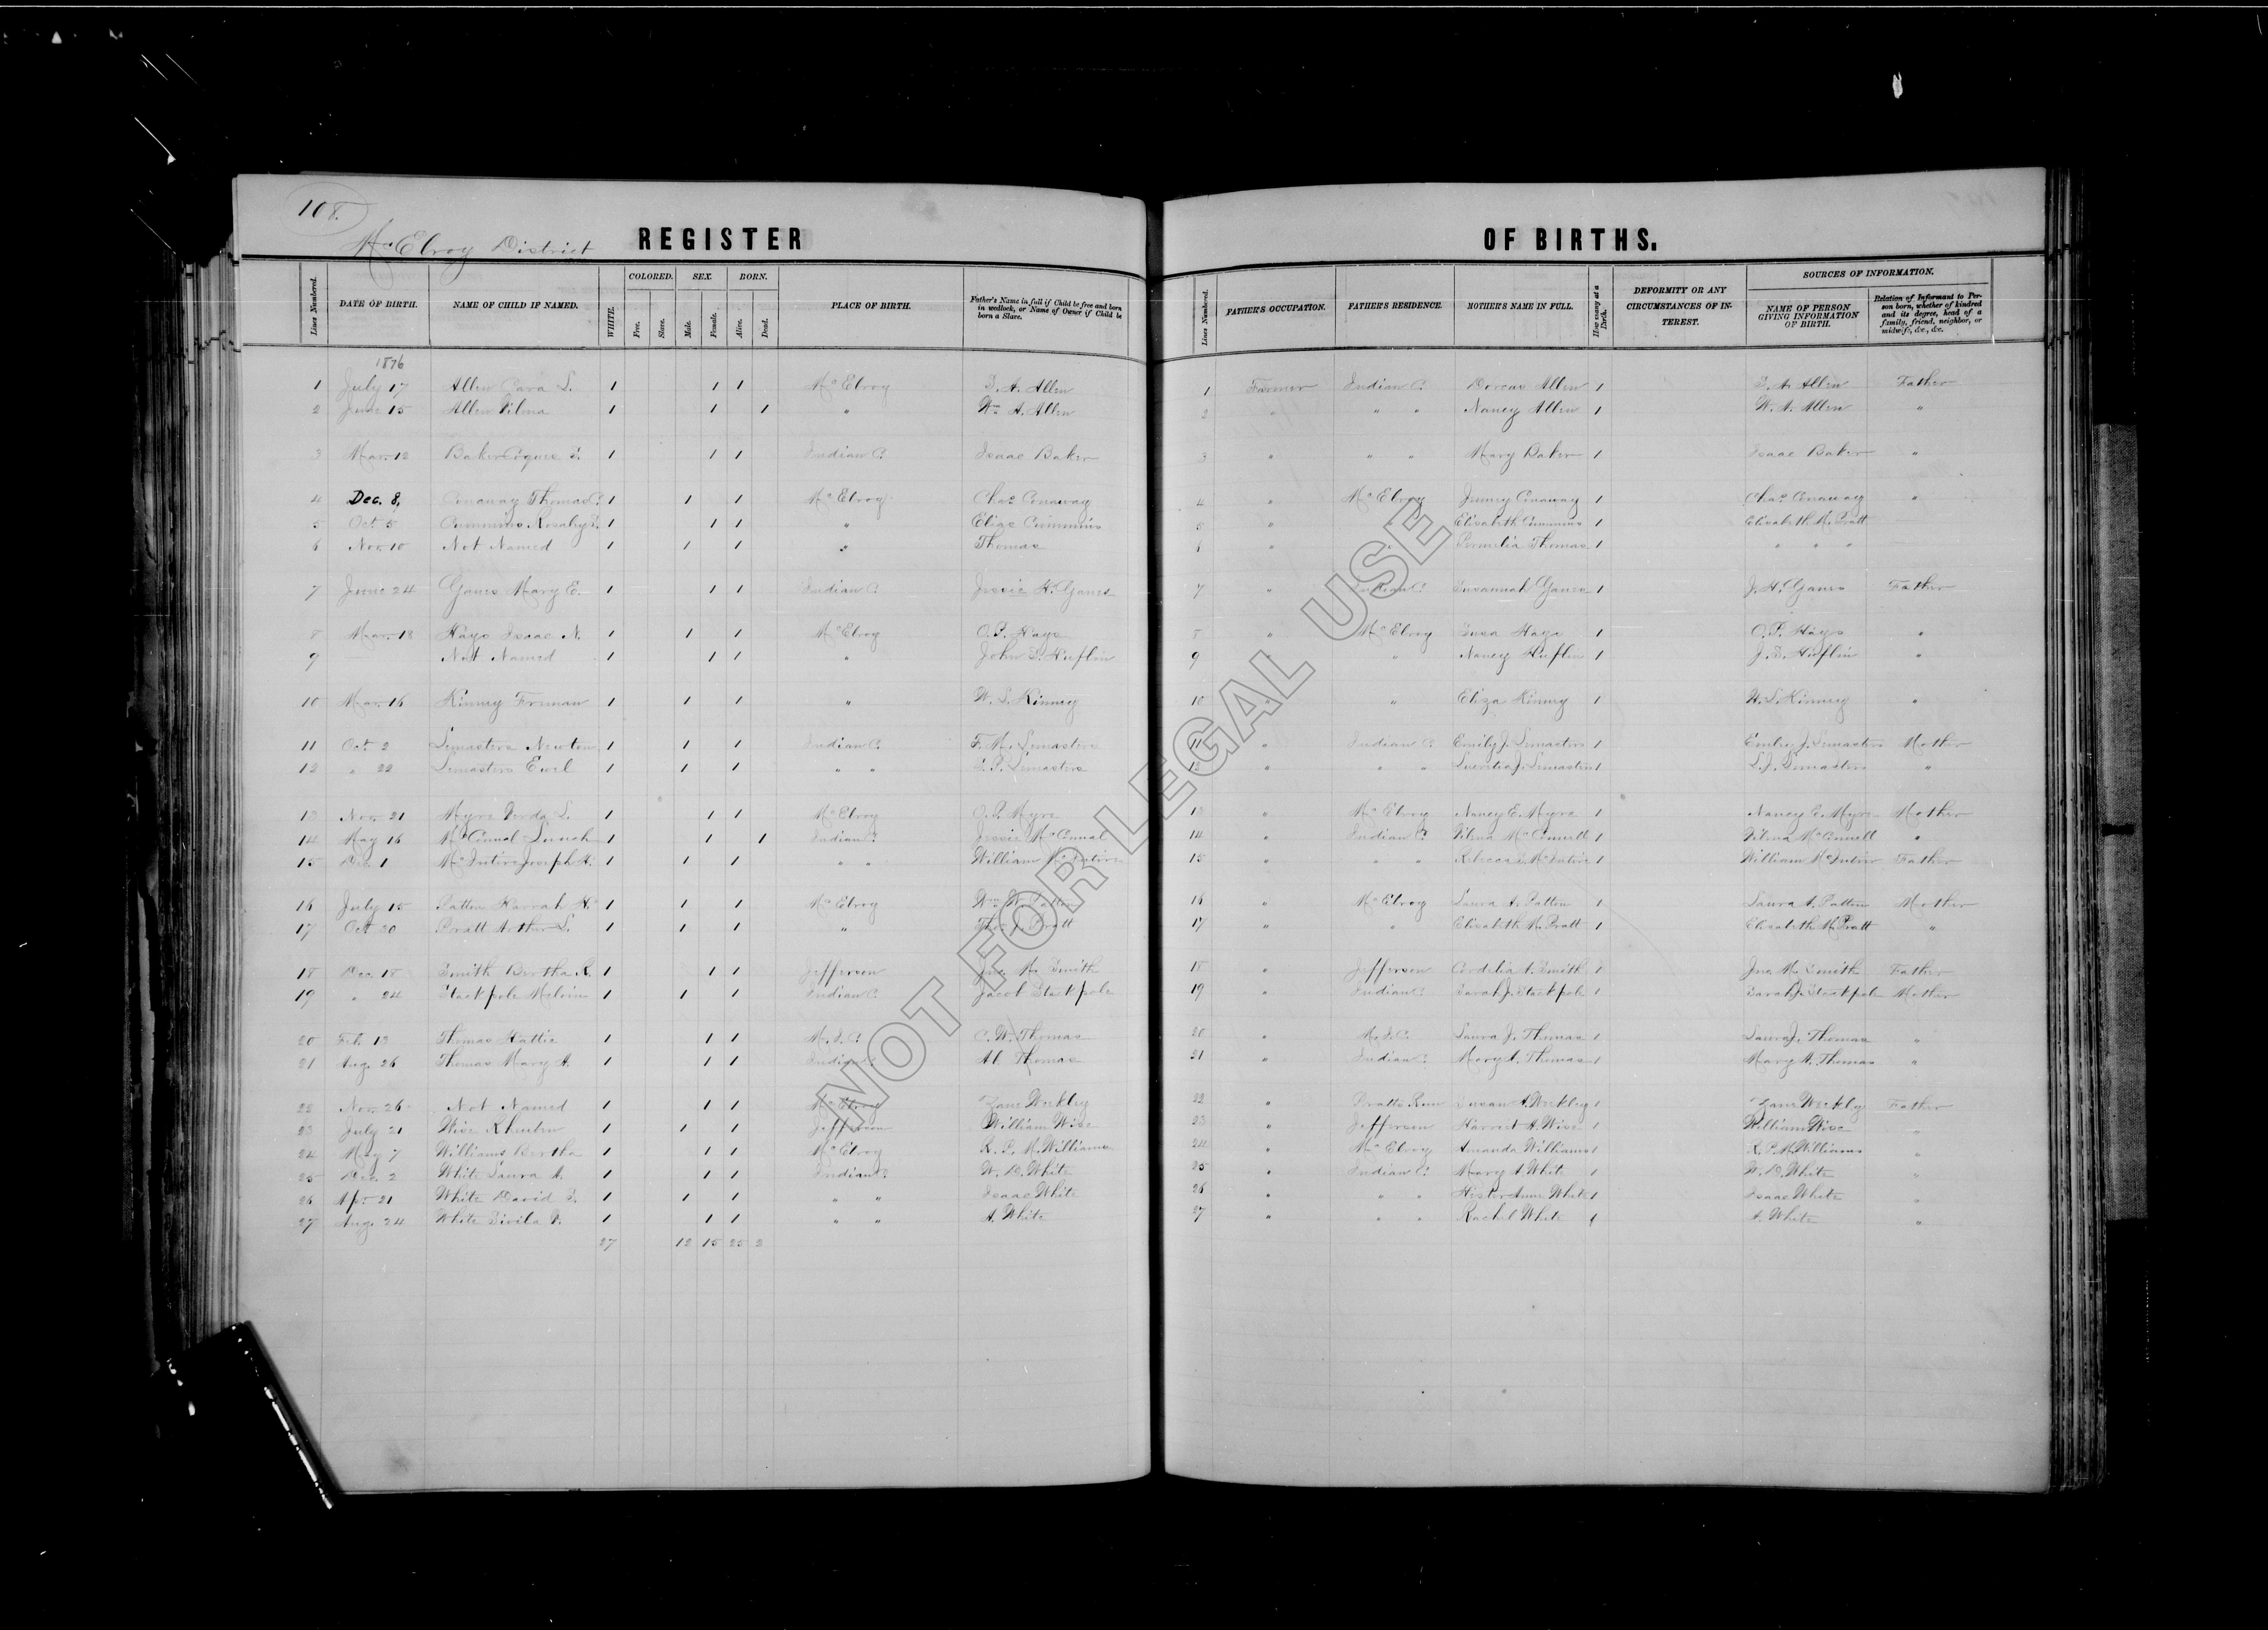 108.
McElroy District
REGISTER OF BIRTHS.
Lines Numbered. DATE OF BIRTH. NAME OF CHILD IF NAMED. WHITE. COLORED. Free. Slave. SEX. Male. Female. BORN. Alive. Dead. PLACE OF BIRTH. Father's Name in full if Child be free and born in wedlock, or Name of Owner if Child be born a Slave. Lines Numbered. FATHER'S OCCUPATION. FATHER'S RESIDENCE. MOTHER'S NAME IN FULL. How many at a Birth. DEFORMITY OR ANY CIRCUMSTANCES OF INTEREST. SOURCES OF INFORMATION. NAME OF PERSON GIVING INFORMATION OF BIRTH. Relation of Informant to Person born, whether of kindred and its degree, head of a family, friend, neighbor, or midwife, &c., &c.
1876
1 July 17 Allen Cara L. 1 1 1 McElroy A. Allen 1 Farmer Indian C. Dorcas Allen 1 A. Allen Father
2 June 15 Allen 1 1 1 " Wm A. Allen 2 " " " Nancy Allen 1 W. A. Allen "
3 Mar. 12 Baker 1 1 1 Indian C. Isaac Baker 3 " " " Mary Baker 1 Isaac Baker "
4 Dec. 8, Conaway Thomas C. 1 1 1 McElroy Chas Conaway 4 " McElroy Conaway 1 Chas Conaway "
5 Oct 5 Cummins 1 1 1 " Cummins 5 " " Elisabeth Cummins 1 Elisabeth M. Pratt
6 Nov. 10 Not Named 1 1 1 " Thomas 6 " " Permelia Thomas 1 " " "
7 June 24 Mary E. 1 1 1 Indian C. Jessie H. 7 " Indian C. Susannah 1 J. H. Father
8 Mar. 18 Hays Isaac N. 1 1 1 McElroy O. P. Hays 8 " McElroy Hays 1 O. P. Hays "
9 Not Named 1 1 1 " John Huflin 9 " Nancy Huflin 1 J. Huflin "
10 Mar. 16 Kinney Freeman 1 1 1 " W. S. Kinney 10 " " Eliza Kinney 1 W. S. Kinney "
11 Oct. 2 Lemasters Newton 1 1 1 Indian C. F. M. Lemasters 11 " Indian C. Emily J. Lemasters 1 Emily J. Lemasters Mother
12 " 22 Lemasters 1 1 1 " " P. Lemasters 12 " " " Lemasters 1 L. J. Lemasters "
13 Nov. 21 Myre L. 1 1 1 McElroy O. P. Myre 13 " McElroy Nancy E. Myre 1 Nancy E. Myre Mother
14 May 16 McConnal 1 1 1 Indian C. Jessie McConnal 14 " Indian C. McConnell 1 McConnell "
15 Dec. 1 McIntire Joseph H. 1 1 1 " " William McIntire 15 " " " Rebecca McIntire 1 William McIntire Father
16 July 15 Patton H. 1 1 1 McElroy Wm W. Patton 16 " McElroy Laura A. Patton 1 Laura A. Patton Mother
17 Oct 20 Pratt Arthur L. 1 1 1 " Thos J. Pratt 17 " " Elisabeth M. Pratt 1 Elisabeth M. Pratt "
18 Dec. 18 Smith Bertha R. 1 1 1 Jefferson Jno. M. Smith 18 " Jefferson Cordelia A. Smith 1 Jno. M. Smith Father
19 " 24 Stackpole Melvin 1 1 1 Indian C. Jacob Stackpole 19 " Indian C. Sarah J. Stackpole 1 Sarah J. Stackpole Mother
20 Feb 12 Thomas Hattie 1 1 1 M. I. C. C. W. Thomas 20 " M. I. C. Laura J. Thomas 1 Laura J. Thomas "
21 Aug. 26 Thomas Mary A. 1 1 1 Indian C. Thomas 21 " Indian C. Mary A. Thomas 1 Mary A. Thomas "
22 Nov. 26 Not Named 1 1 1 McElroy Zane Weekley 22 " Pratts Run Susan A. Weekley 1 Zane Weekley Father
23 July 21 Wise 1 1 1 Jefferson William Wise 23 " Jefferson Harriet A. Wise 1 William Wise "
24 May 7 Williams Bertha 1 1 1 McElroy R. P. M. Williams 24 " McElroy Amanda Williams 1 R. P. M. Williams "
25 Dec. 2 White Laura A. 1 1 1 Indian C. W. D. White 25 " Indian C. Mary A. White 1 W. D. White "
26 Apr. 21 White David 1 1 1 " " Isaac White 26 " " " Hester Anne White 1 Isaac White "
27 Aug. 24 White 1 1 1 " " A. White 27 " " " Rachel White 1 A. White "
27 12 15 25 2
NOT FOR LEGAL USE